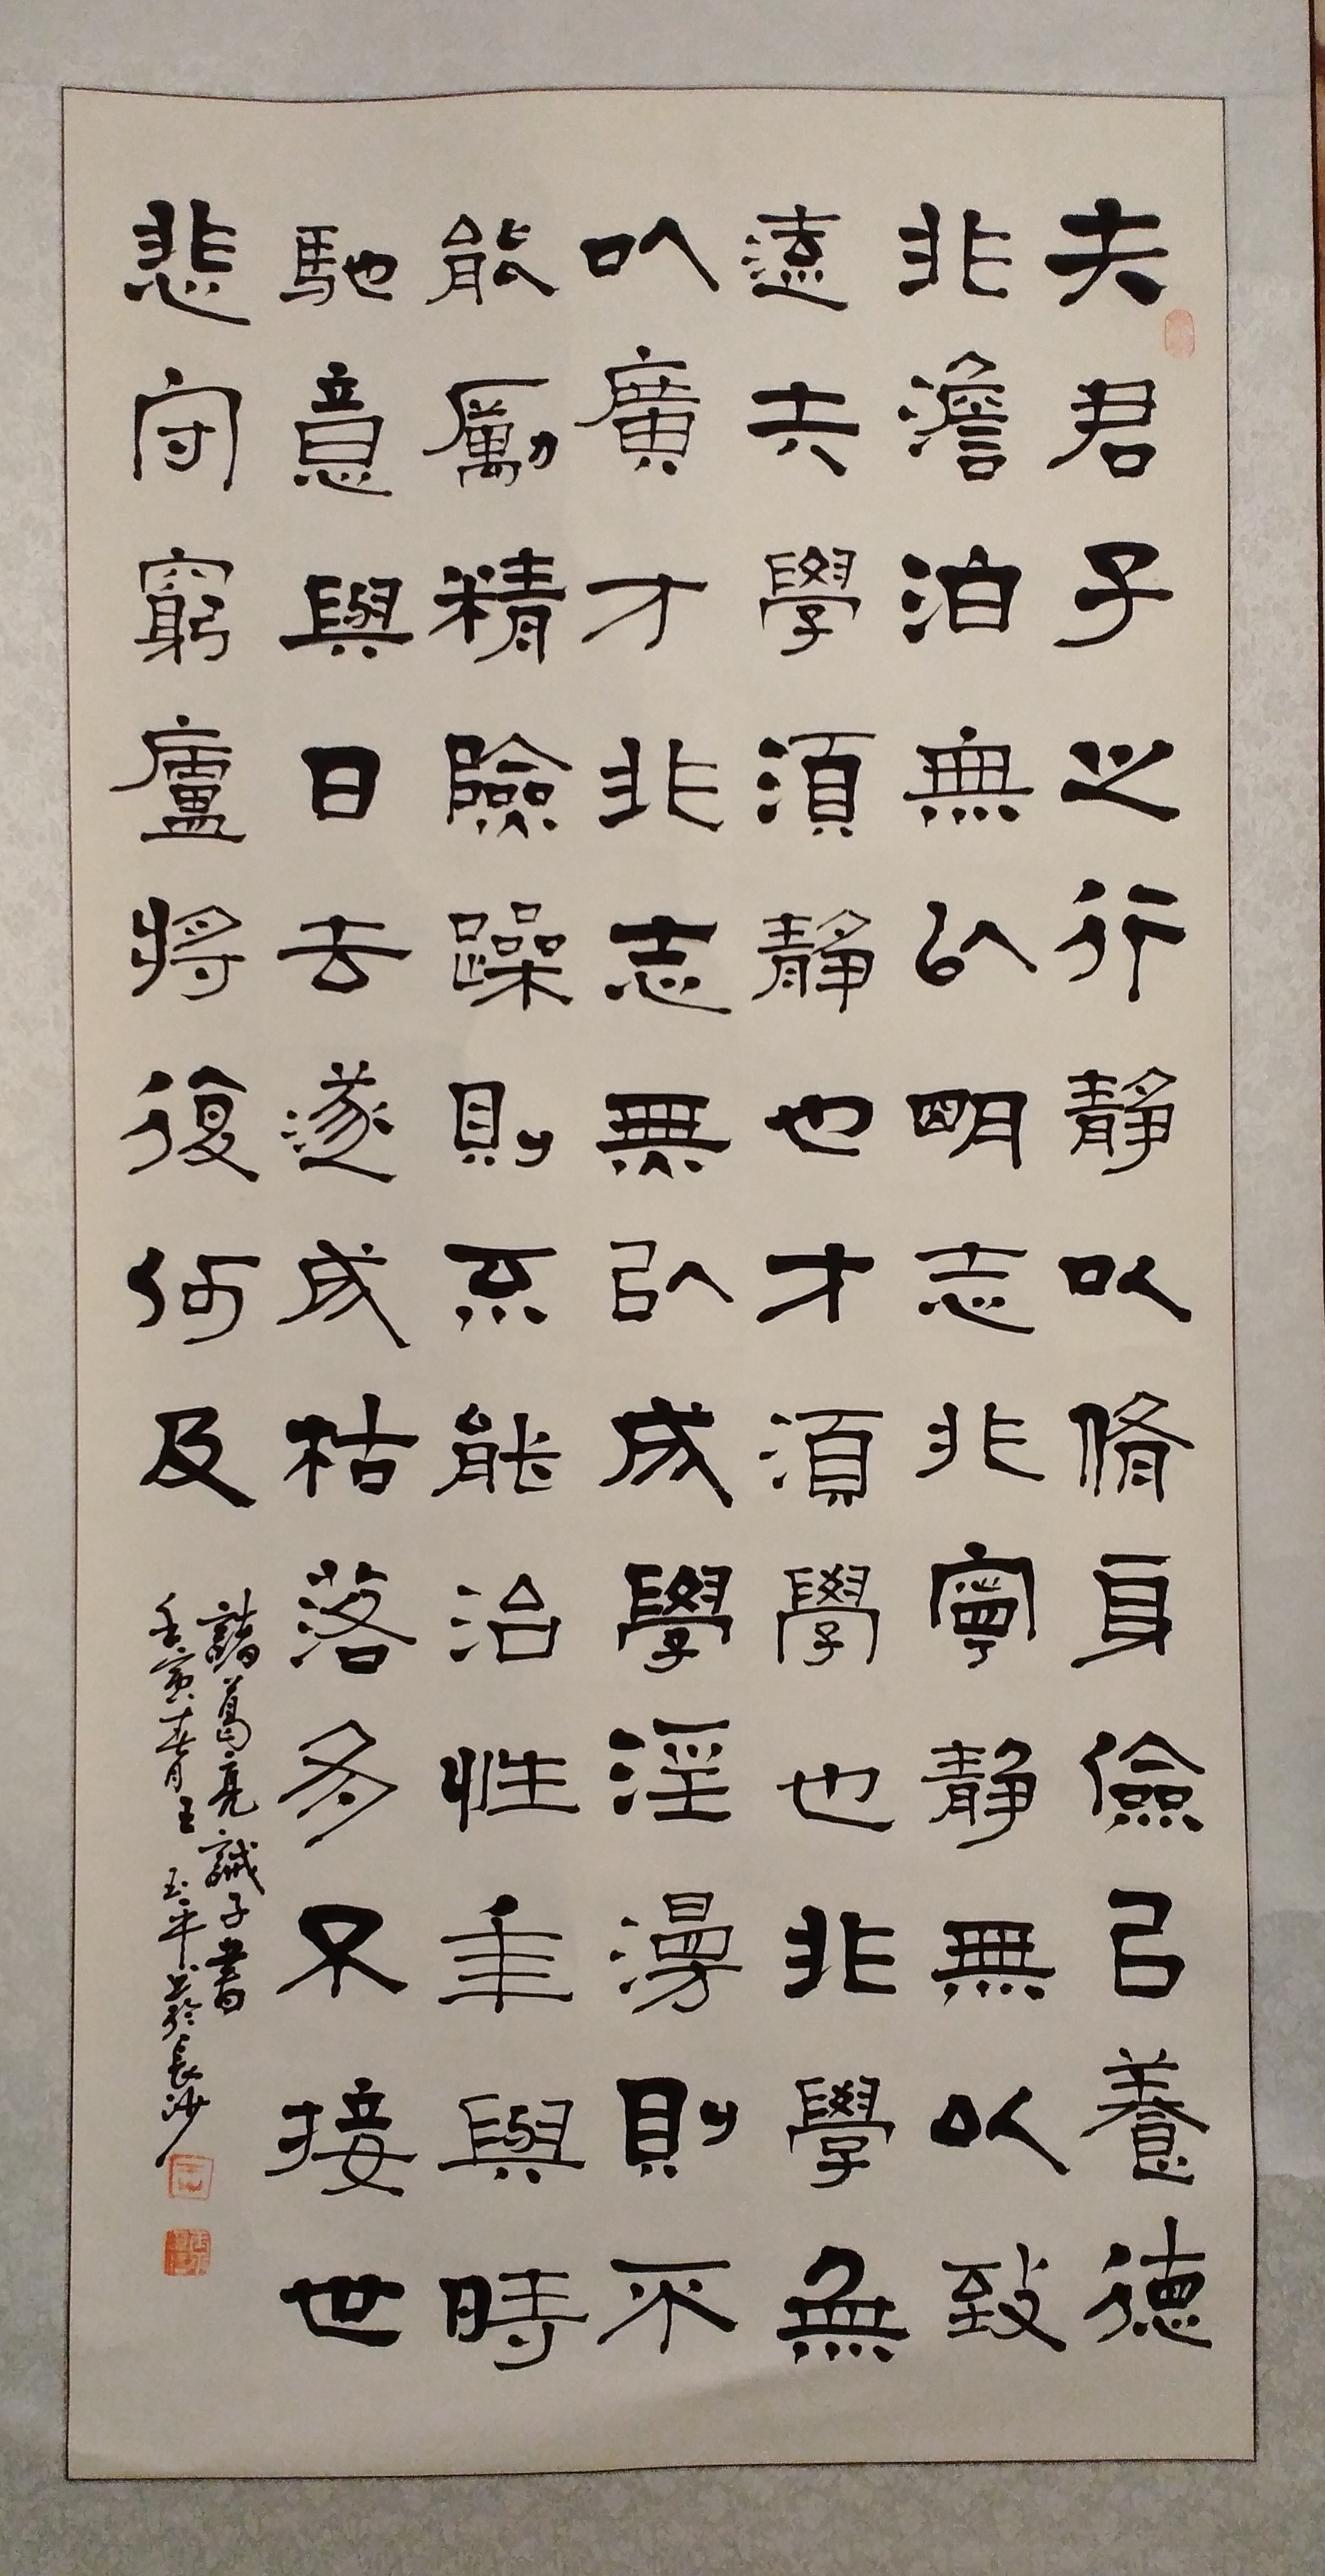 夫君子之行靜以脩身儉己養德
非澹泊無以明志非寧靜無以致
遠夫學須靜也才須學也非學無
以廣才非志無以成學淫漫則不
能勵精險躁則不能治性年與時
馳意與日去遂成枯落多不接世
悲守窮廬將復何及
諸葛亮誡子書
壬寅春月王玉平書於長沙